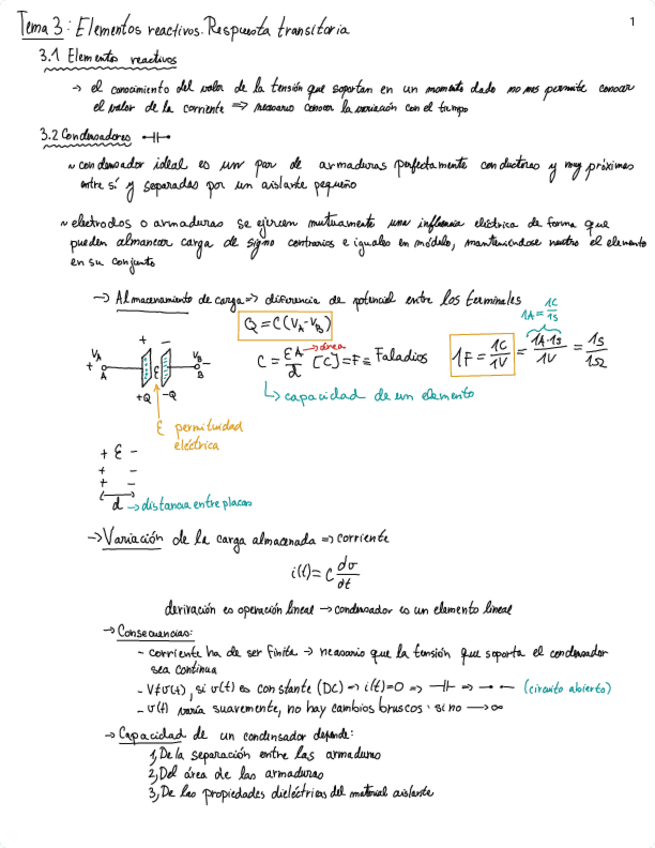 Tema 3: Elementos reactivos. Respuesta transitoria
1
3.1 Elementos reactivos
→ el conocimiento del valor de la tensión que soportan en un momento dado no nos permite conocer
el valor de la corriente ⇒ necesario conocer la variación con el tiempo
3.2 Condensadores
~ condensador ideal es un par de armaduras perfectamente conductores y muy próximas
entre sí y separadas por un aislante pequeño
~ electrodos o armaduras se ejercen mutuamente una influencia eléctrica de forma que
pueden almancear carga de signo contrarios e iguales en módelo, manteniéndose neutro el elemento
en su conjunto
→ Almacenamiento de carga ⇒ diferencia de potencial entre los terminales
Q = C(V_A - V_B)
1A = 1C/1s
C = εA/d [C] = F ≡ Faladios
→ área
1F = 1C/1V = 1A·1s/1V = 1s/1Ω
↳ capacidad de un elemento
V_A + - V_B
+ A ε B -
+Q -Q
ε permitividad
eléctrica
+ ε -
+ -
+ -
d → distancia entre placas
→ Variación de la carga almacenada ⇒ corriente
i(t) = C dv/dt
derivación es operación lineal → condensador es un elemento lineal
→ Consecuencias:
- corriente ha de ser finita → necesario que la tensión que soporta el condensador
sea continua
- V≠v(t), si v(t) es constante (DC) ⇒ i(t)=0 ⇒ ⇒ (circuito abierto)
- v(t) varía suavemente, no hay cambios bruscos · si no → ∞
→ Capacidad de un condensador depende:
1, De la separación entre las armaduras
2, Del área de las armaduras
3, De las propiedades dieléctricas del material aislante